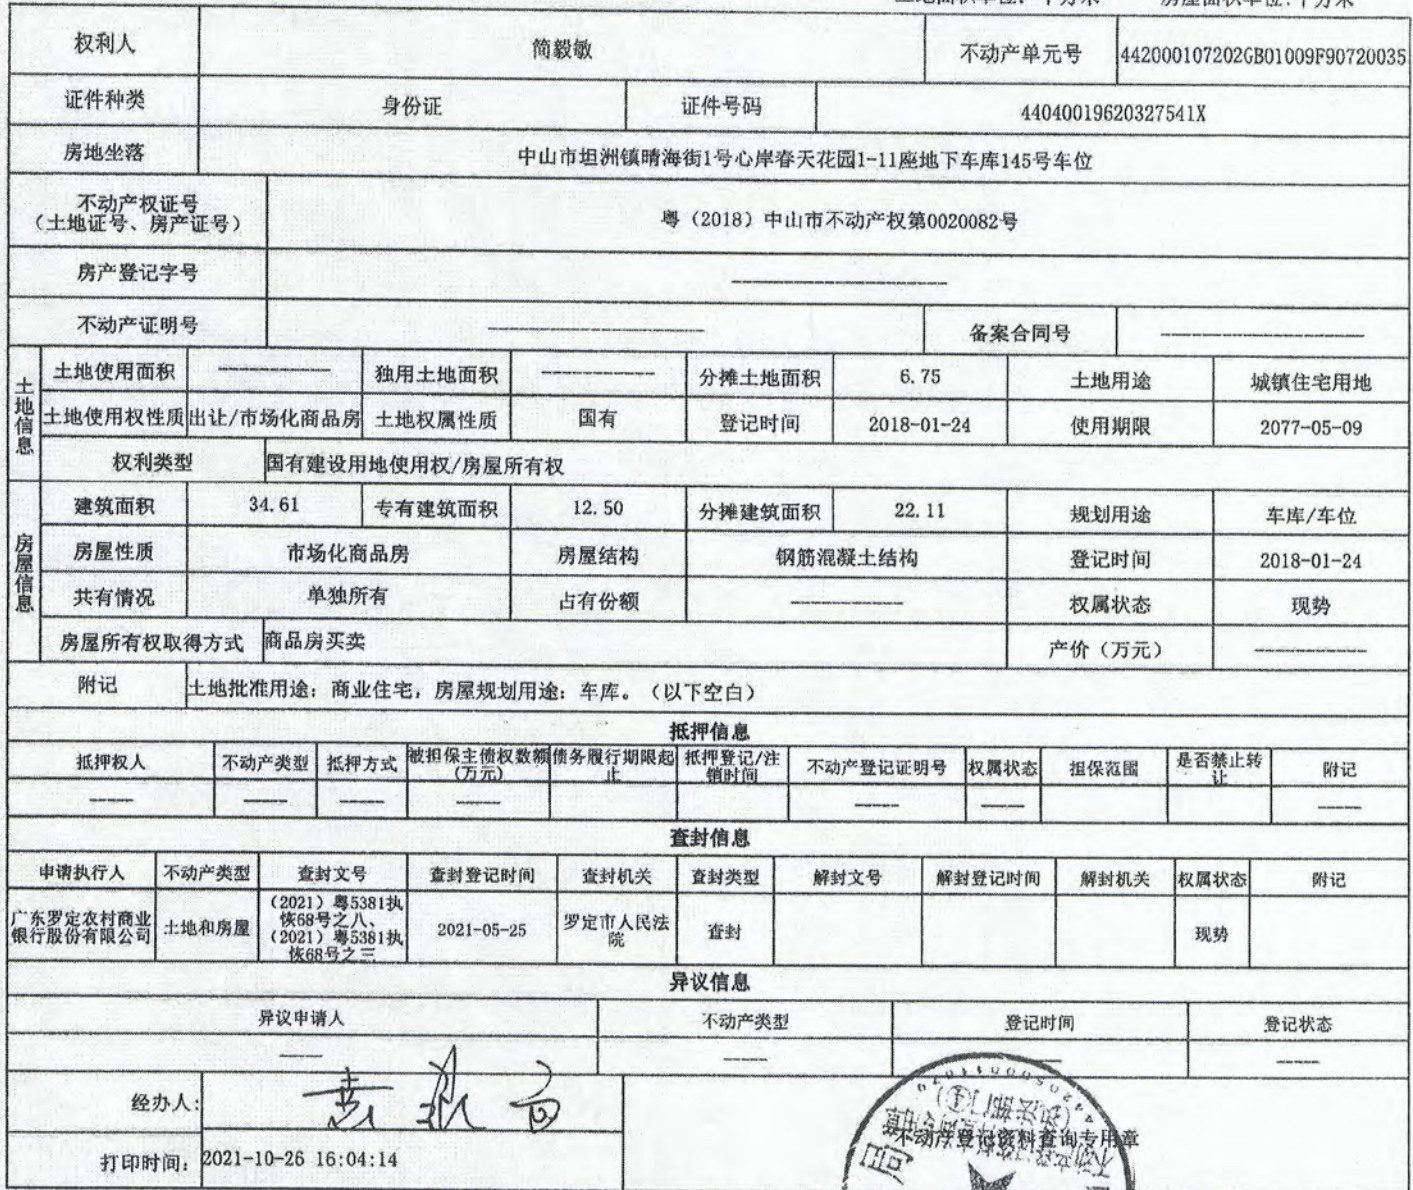 权利人 简毅敏 不动产单元号 442000107202GB01009F90720035
证件种类 身份证 证件号码 44040019620327541X
房地坐落 中山市坦洲镇晴海街1号心岸春天花园1-11座地下车库145号车位
不动产权证号
（土地证号、房产证号） 粤（2018）中山市不动产权第0020082号
房产登记字号 ——————————
不动产证明号 —————————— 备案合同号 ——————————
土地信息
土地使用面积 —————— 独用土地面积 —————— 分摊土地面积 6.75 土地用途 城镇住宅用地
土地使用权性质 出让/市场化商品房 土地权属性质 国有 登记时间 2018-01-24 使用期限 2077-05-09
权利类型 国有建设用地使用权/房屋所有权
房屋信息
建筑面积 34.61 专有建筑面积 12.50 分摊建筑面积 22.11 规划用途 车库/车位
房屋性质 市场化商品房 房屋结构 钢筋混凝土结构 登记时间 2018-01-24
共有情况 单独所有 占有份额 —————— 权属状态 现势
房屋所有权取得方式 商品房买卖 产价（万元） ——————
附记 土地批准用途：商业住宅，房屋规划用途：车库。（以下空白）
抵押信息
抵押权人 不动产类型 抵押方式 被担保主债权数额（万元） 债务履行期限起止 抵押登记/注销时间 不动产登记证明号 权属状态 担保范围 是否禁止转让 附记
—— —— —— —— —— —— ——
查封信息
申请执行人 不动产类型 查封文号 查封登记时间 查封机关 查封类型 解封文号 解封登记时间 解封机关 权属状态 附记
广东罗定农村商业银行股份有限公司 土地和房屋 （2021）粤5381执恢68号之八、（2021）粤5381执恢68号之三 2021-05-25 罗定市人民法院 查封 现势
异议信息
异议申请人 不动产类型 登记时间 登记状态
—— —— —— ——
经办人:
不动产登记资料查询专用章
打印时间: 2021-10-26 16:04:14